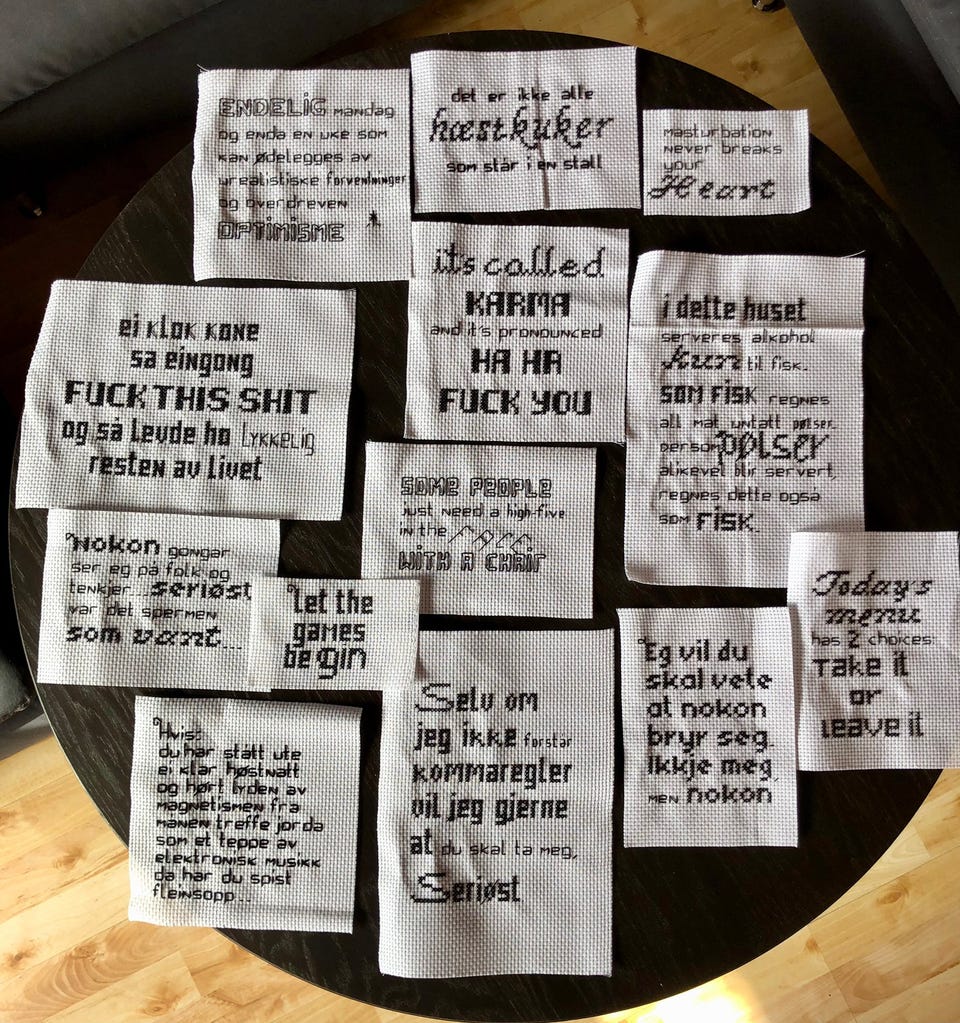 ENDELIG mandag
og enda en uke som
kan ødelegges av
urealistiske forventninger
og overdreven
OPTIMISME
det er ikke alle
hæstkuker
som står i en stall
masturbation
never breaks
your
Heart
ei klok kone
sa eingong
FUCK THIS SHIT
og så levde ho lykkelig
resten av livet
it's called
KARMA
and it's pronounced
HA HA
FUCK YOU
i dette huset
serveres alkohol
kun til fisk.
SOM FISK regnes
all mat untatt pølser.
pølser
alikevel blir servert,
regnes dette også
som FISK.
SOME PEOPLE
just need a high-five
in the FACE
WITH A CHAIR
Nokon gongar
ser eg på folk og
tenkjer...seriøst
var det spermen
som vant...
Let the
games
begin
Today's
menu
has 2 choices:
Take it
or
leave it
Hvis:
du har stått ute
ei klar høstnatt
og hørt lyden av
magnetismen fra
månen treffe jorda
som et teppe av
elektronisk musikk
da har du spist
fleinsopp...
Selv om
jeg ikke forstår
kommaregler
vil jeg gjerne
at du skal ta meg,
Seriøst
Eg vil du
skal vete
at nokon
bryr seg.
Ikkje meg,
men nokon